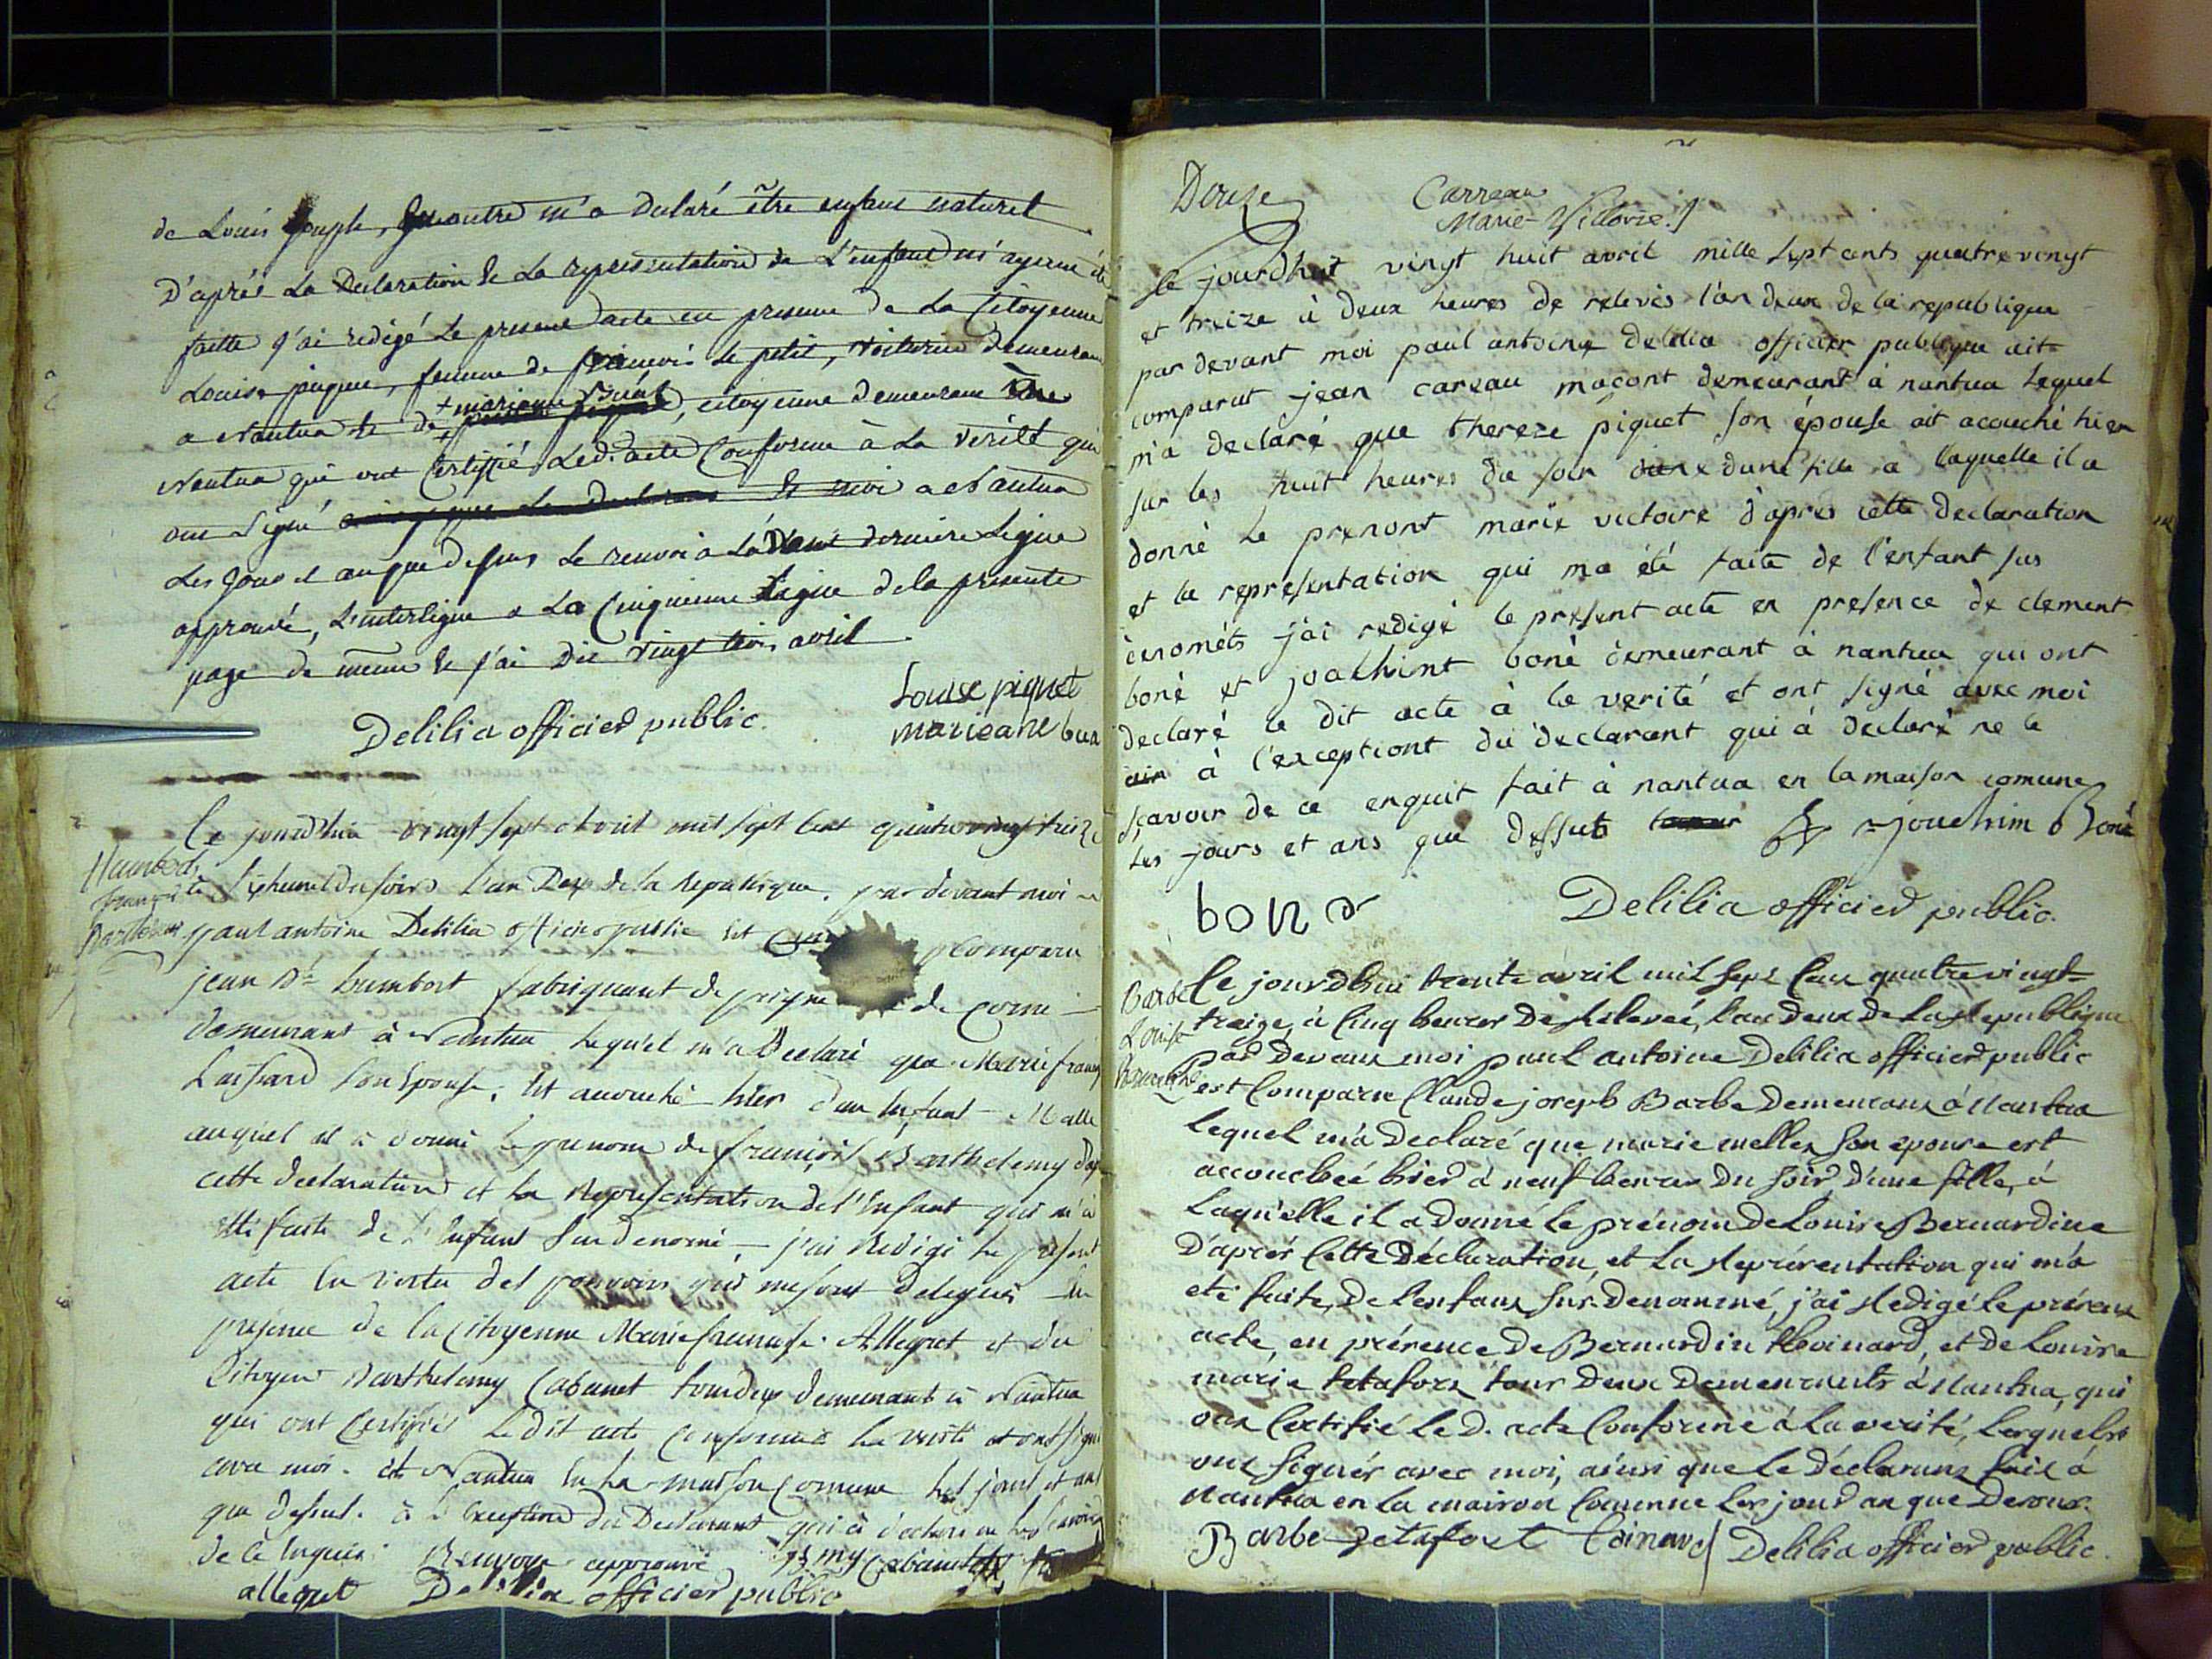 de Louis Joseph, En outre m'a declaré être enfant naturel
D'après La Declaration & La representation de L'enfant m'ayant été
faitte j'ai redigé Le present acte en presence de La Citoyenne
Louise piquet, femme de françois le petit, voiturier demeurant
+ marianne
a Nantua & de citoyenne demeurant
Nantua qui ont Certiffié Led. acte Conforme à La verité qui
ont Signé & moi a Nantua
Les jour et an que dessus Le renvoi a dernière Ligne
approuvé, L'interligne a La Cinquieme Ligne de la presente
page de meme & j'ai Dit vingt trois avril
Louise piquet
Delilia officier public.
marieane bua
Ce jourdhui vingt sept avril mil sept cent quatrevingt treize
humbert
françois
Barthelemi
heures du soir L'an Deux de la Republique. par devant moi
paul antoine Delilia officier public Est comparu
jean Bte humbert fabriquant de peigne de corne
demeurant à Nantua Lequel m'a Declaré que Marie françoise
son Epouse, Est accouché hier d'un Enfant Malle
auquel il a donné le prenom de françois Barthelemy d'ap
cette declaration et la Representation de l'Enfant qui m'a
Eté faite de l'Enfant Susdenomé, j'ai Redigé le present
acte En vertu des pouvoirs qui me sont delegués En
presence de la Citoyenne Marie françoise Allegret et du
Citoyen Barthelemy Cabanet tous deux demeurant à Nantua
qui ont Certifiés Ledit acte conforme à La verité et ont signé
avec moi. à Nantua En La maison Comune les jour et an
que dessus. à l'Exception du Declarant qui à declaré ne le scavoir
de ce Enquis Renvoye approuvé Bmy Cabanet
allegret Delilia officier public
Douze
Carreau
Marie-Victorie.
Le jourdhuit vingt huit avril mille sept cents quatrevingt
et treize à deux heures de relevés l'an deux de la republique
par devant moi paul antoine delilia officier publique ait
comparut jean careau maçont demeurant à nantua Lequel
m'a declaré que thereze piquet son épouse ait acouché hier
sur les huit heures du soir dune fille a laquelle il a
donné le prenont marie victoire d'apres cette declaration
et la representation qui ma été faite de l'enfant sus
denométs j'ai redigé le present acte en presence de clement
boné et joakhint boné demeurant à nantua qui ont
declaré le dit acte à la verité et ont signé avec moi
ain à l'exceptiont du declarant qui à declaré ne le
scavoir de ce enquit fait à nantua en la maison comune
Les jours et ans que dessus jouchim Boné
bone
Delilia officier public.
Barbe
Louise
Bernardine
Ce jourdhui trente avril mil sept cent quatrevingt
treize, à Cinq heures De Relevée, L'an deux de La Republique
par Devant moi paul antoine Delilia officier public
est Comparu Claude joseph Barbe Demeurant à Nantua
Lequel m'a Declaré que marie mellex Son epouse est
accouchée hier à neuf heures Du Soir, D'une fille, à
Laquelle il a Donné Le prénom De Louise Bernardine
D'après Cette Déclaration, et La Représentation qui m'a
eté faite, De L'enfant Sus-Denommé, j'ai Redigé Le présent
acte, en présence De Bernardin thoinard, et De Louise
marie tetafort tous Deux Demeurants à Nantua, qui
ont Certifié Le D. acte Conforme à La verité, Lesquels
ont Signés avec moi, ainsi que Le Déclarant fait à
Nantua en La maison Commune Les jour & an que Dessus.
Barbe tetafort toinard Delilia officier public.